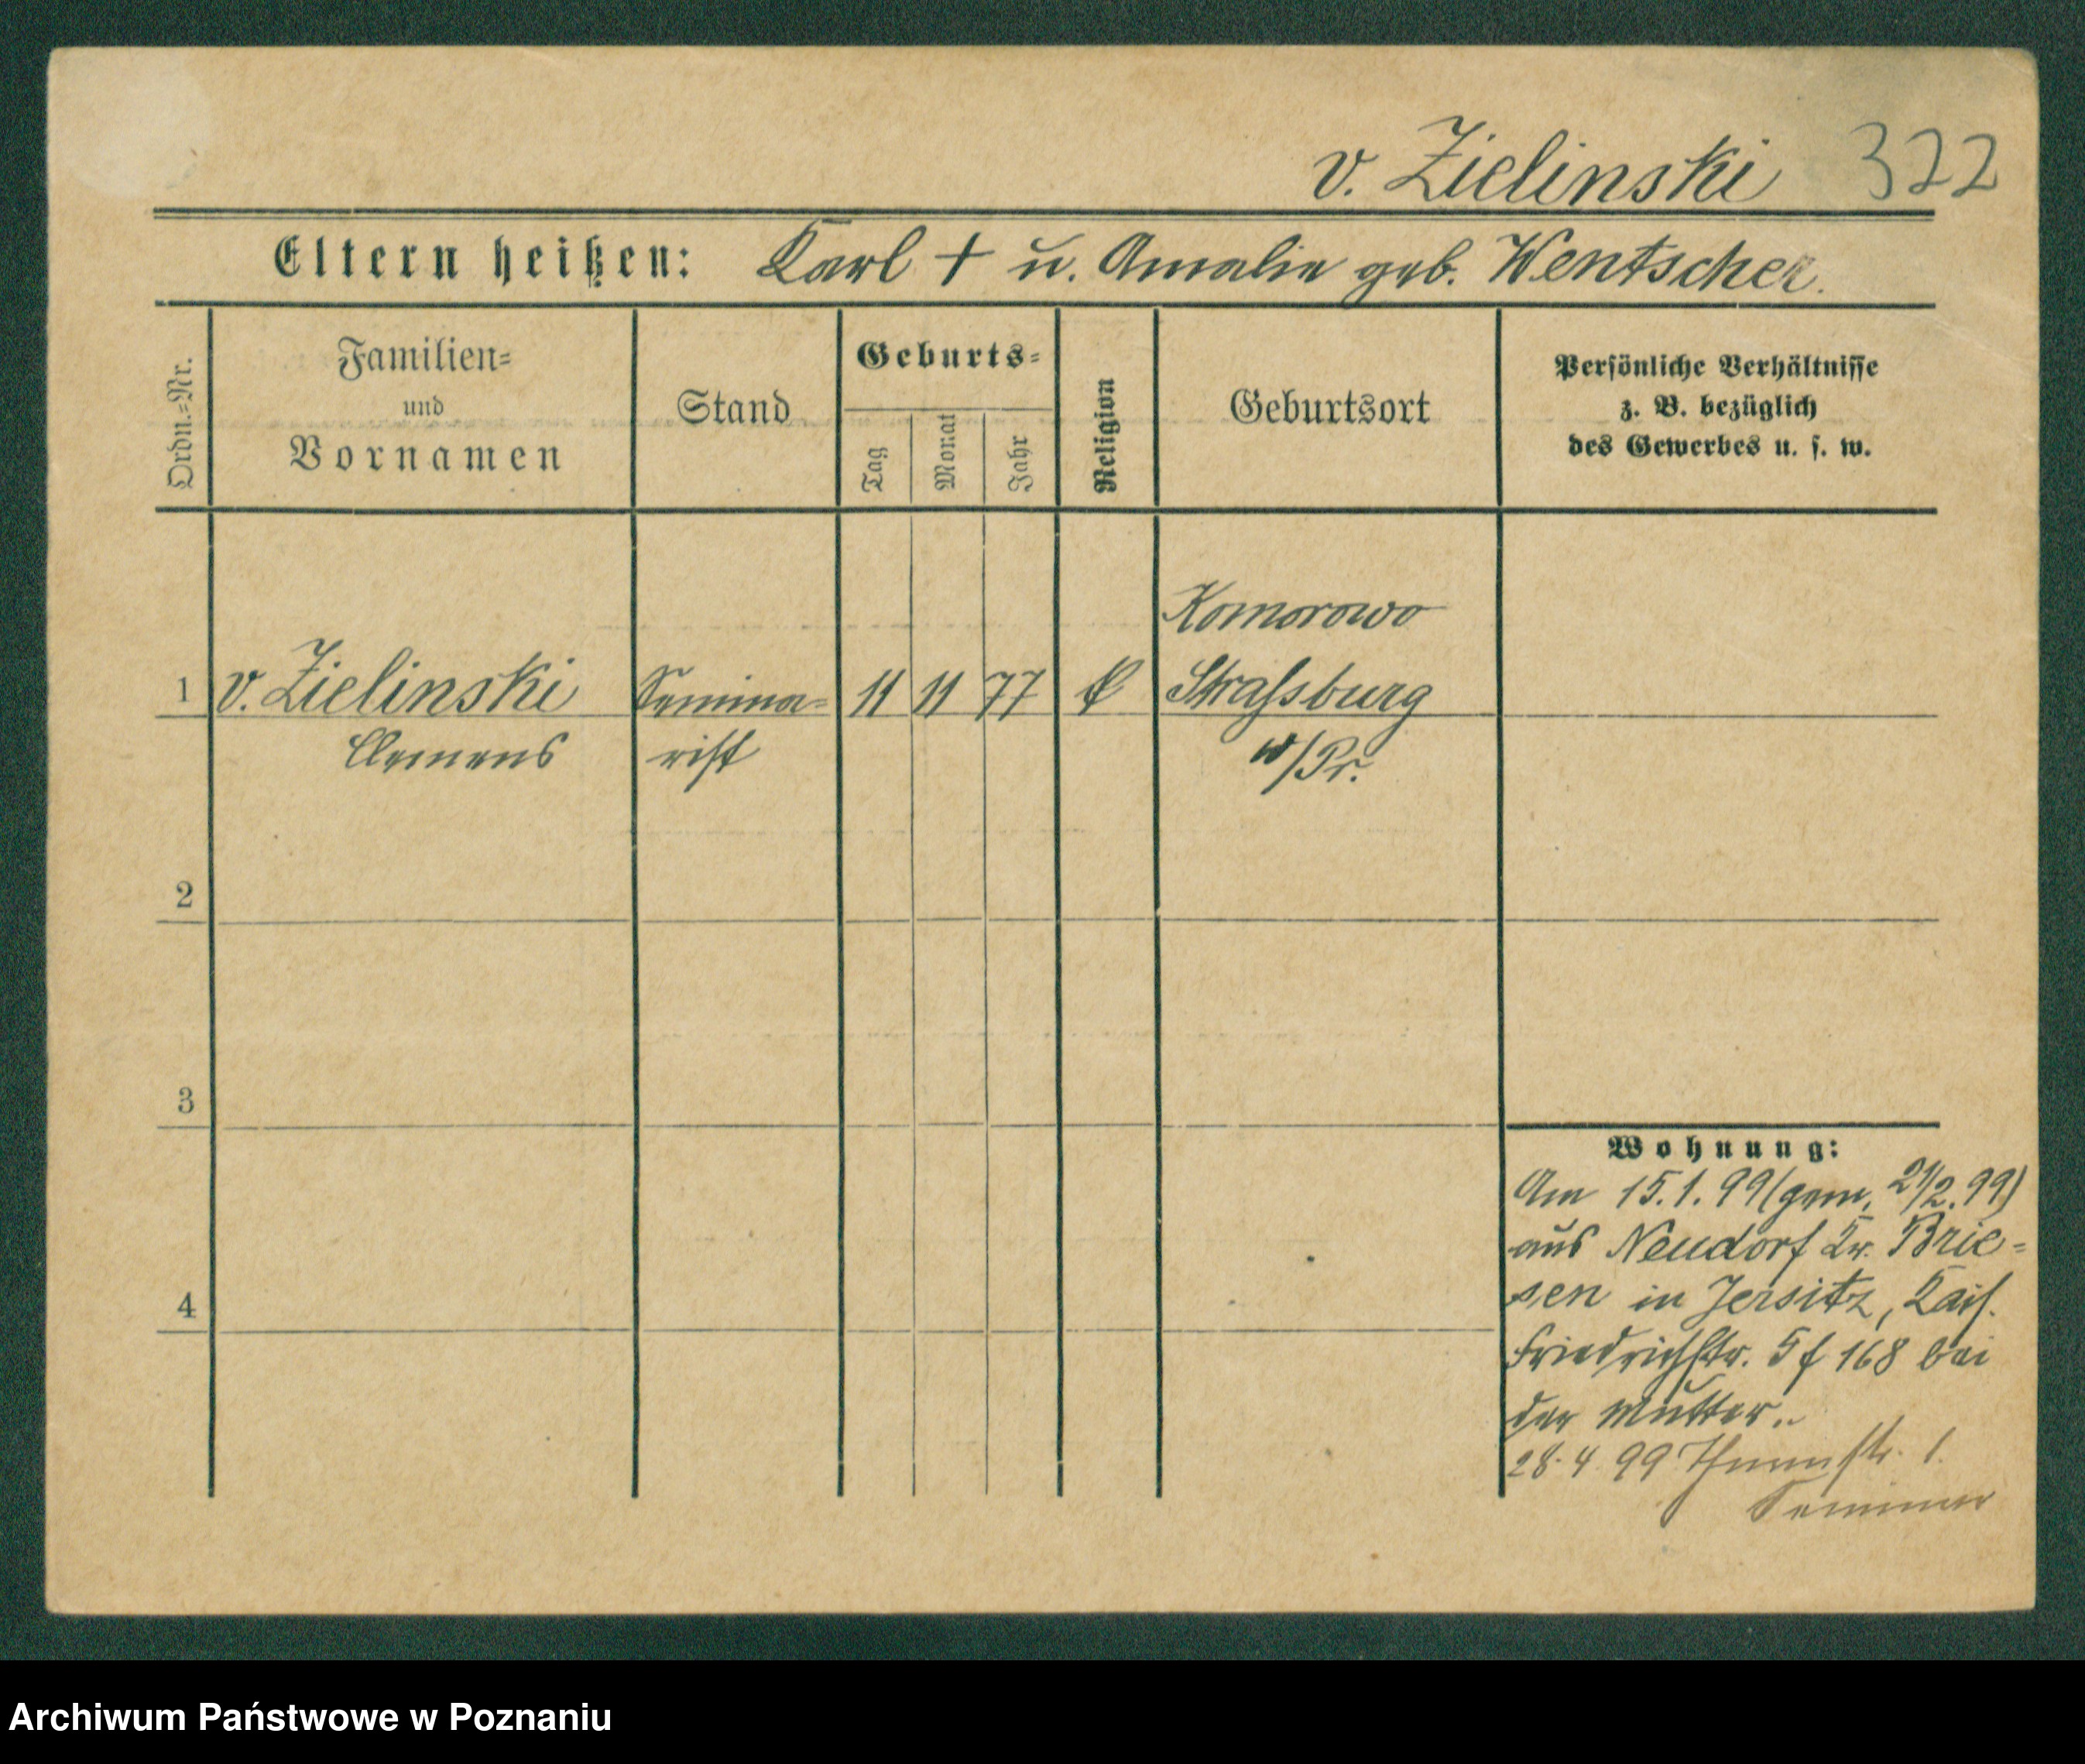 v. Zielinski 322
Eltern heißen: Karl + u. Amalie geb. Wentscher.
Ordn.=Nr.
Familien=
und
Vornamen
Stand
Geburts=
Tag
Monat
Jahr
Religion
Geburtsort
Persönliche Verhältnisse
z. B. bezüglich
des Gewerbes u. s. w.
Komorowo
1 v. Zielinski Semina= 11 11 77 k Strassburg
Clemens rist w/Pr.
2
3
4
Wohnung:
Am 15.1.99 (gem. 21/2.99)
aus Neudorf Kr. Brie=
sen in Jersitz, Kais.
Friedrichstr. 5 f 168 bei
der Mutter.
28.4 99 1.
Seminar
Archiwum Państwowe w Poznaniu